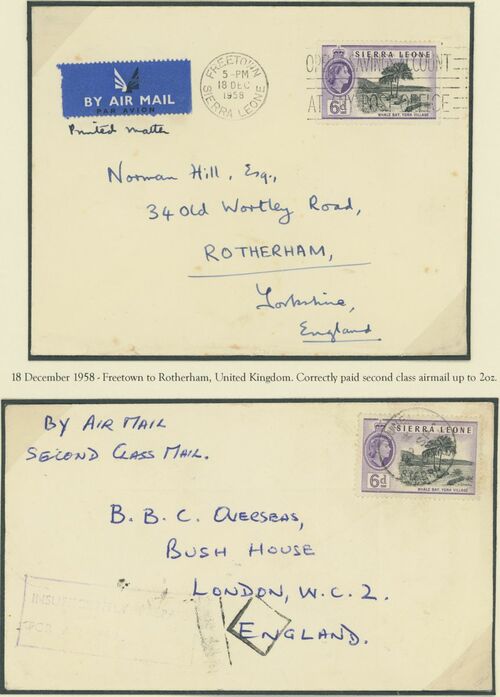 FREETOWN
5-PM
18 DEC
1958
SIERRA LEONE
SIERRA LEONE
6D
WHALE BAY, YORK VILLAGE
BY AIR MAIL
PAR AVION
Printed matter
Norman Hill, Esq.,
34 Old Wortley Road,
ROTHERHAM,
Yorkshire,
England
18 December 1958 - Freetown to Rotherham, United Kingdom. Correctly paid second class airmail up to 2oz.
SIERRA LEONE
6D
WHALE BAY, YORK VILLAGE
BY AIR MAIL
SECOND CLASS MAIL.
B.B.C. OVERSEAS,
BUSH HOUSE
LONDON, W.C.2.
ENGLAND.